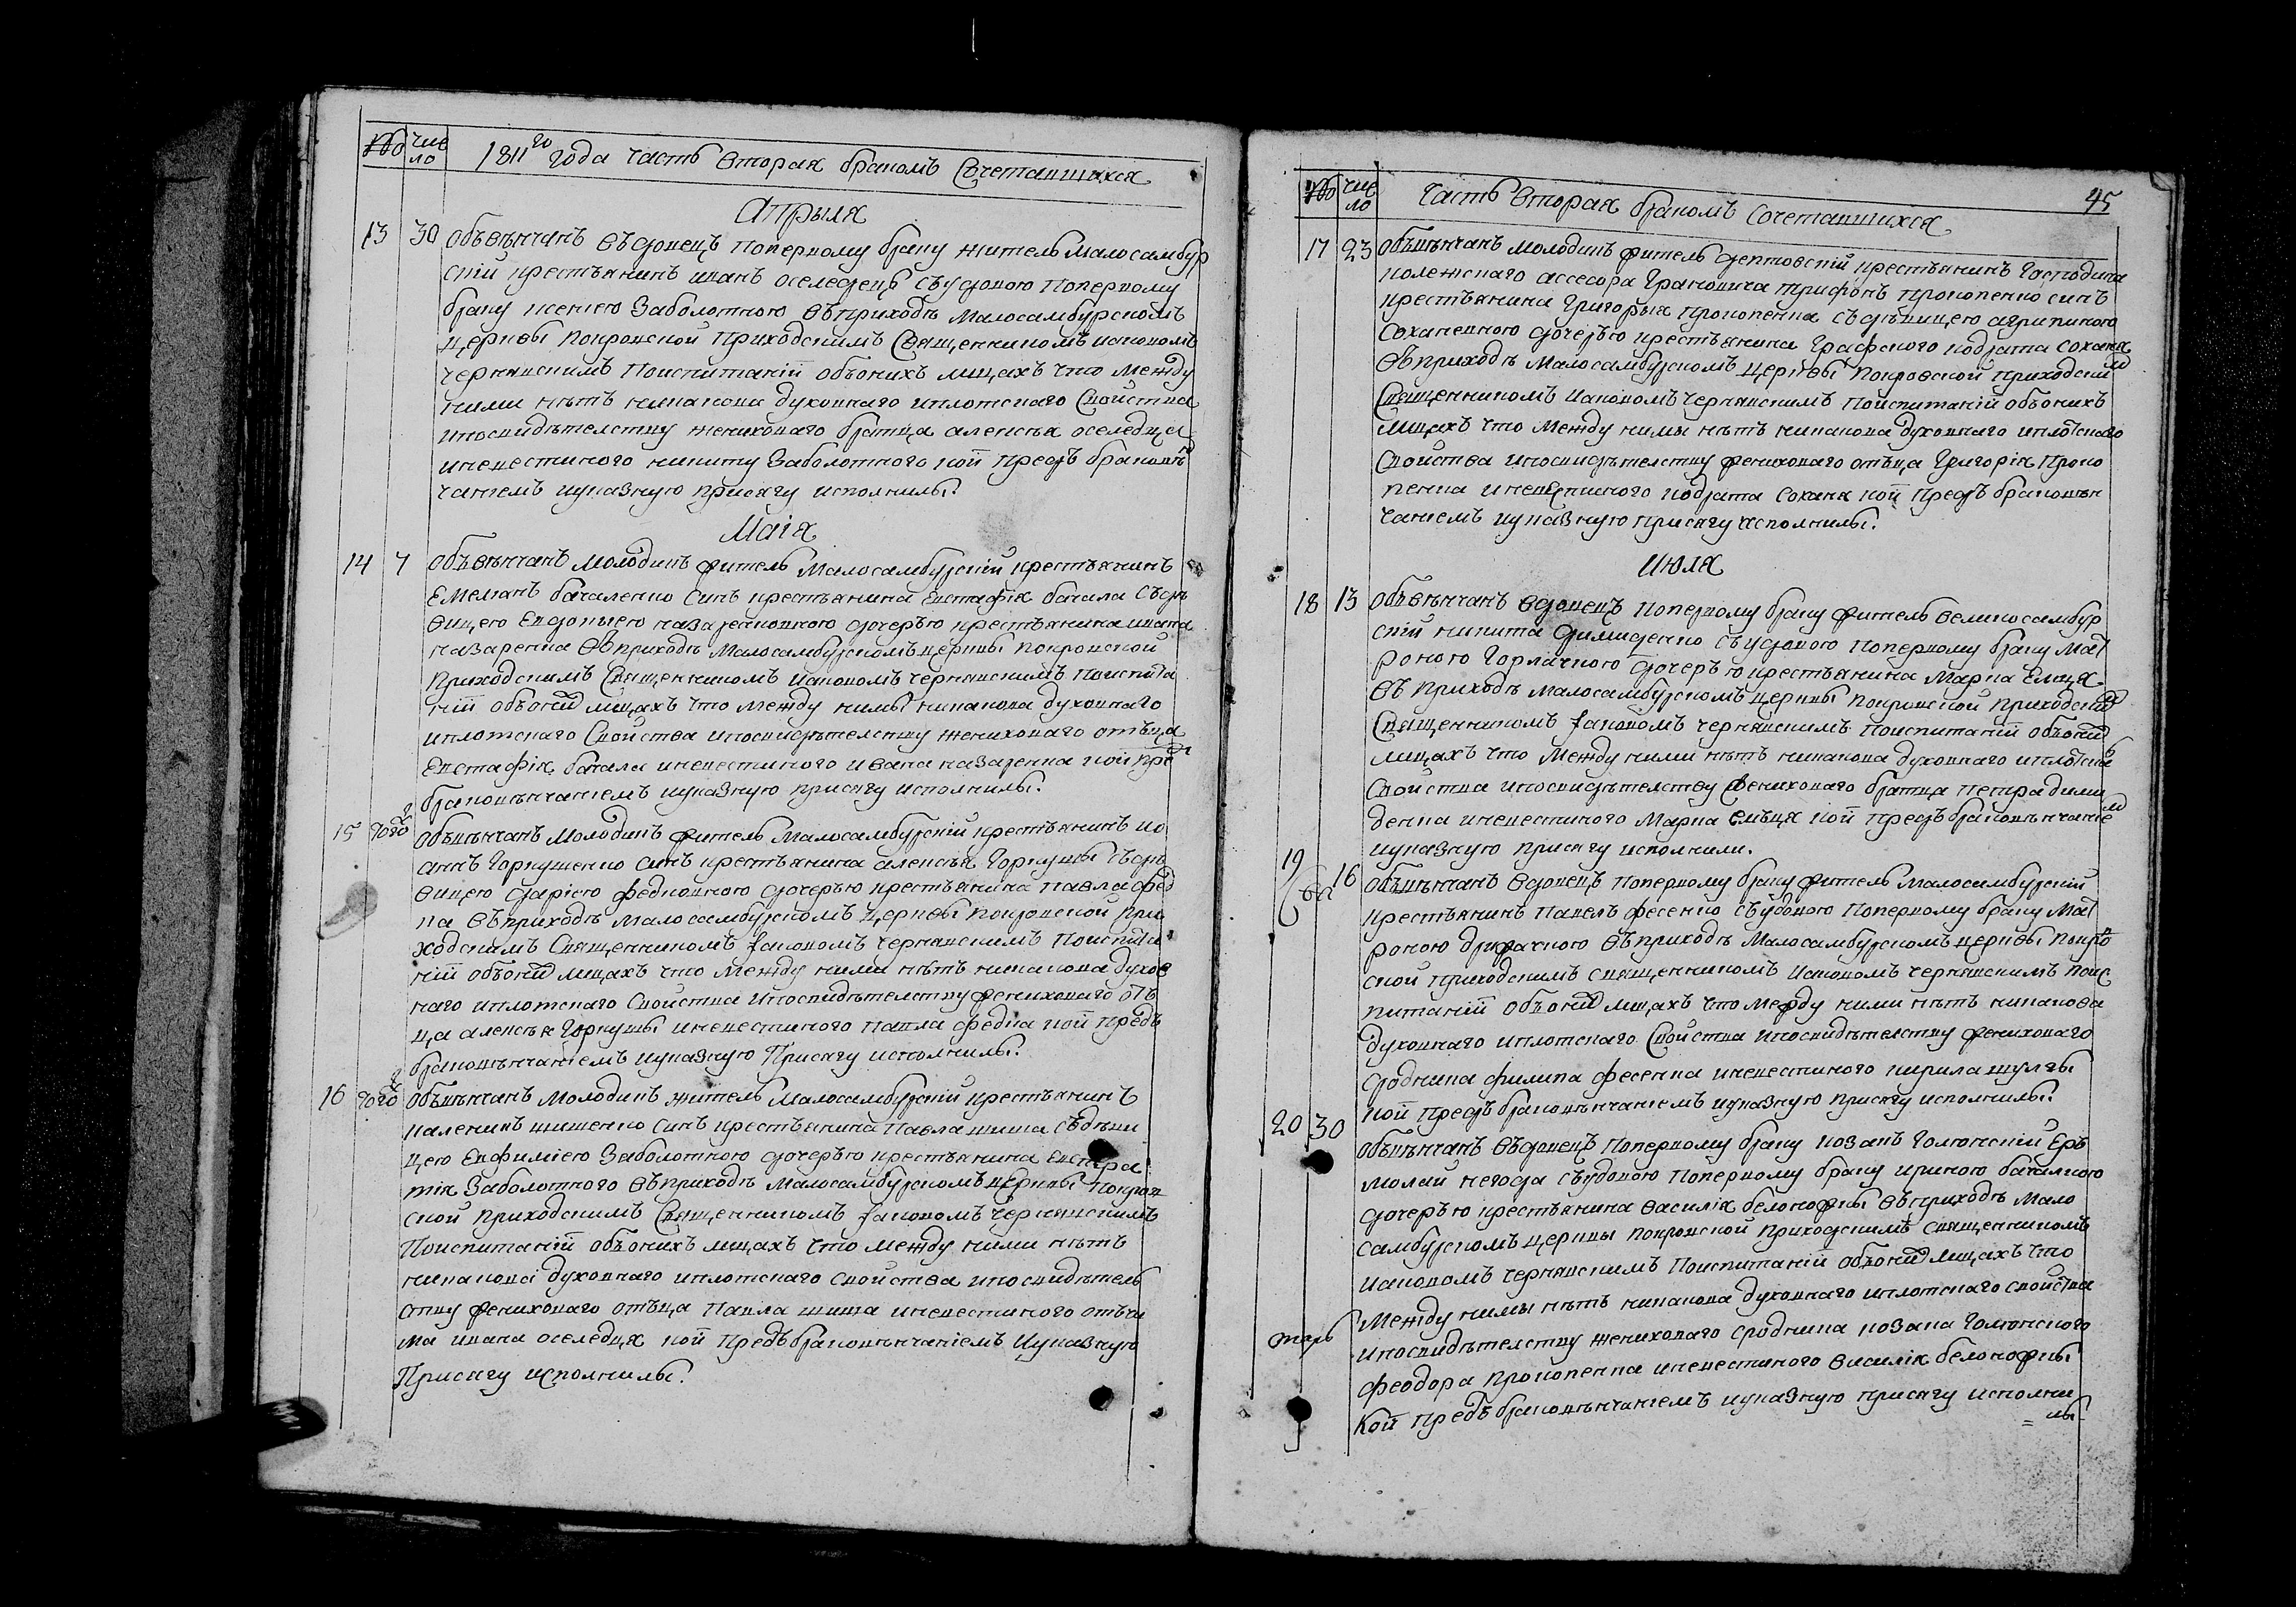 № чис
ло
1811го года часть вторая бракомъ Сочетавшихся
Апрыля
13 30 объвѣнчанъ въдовецъ попервому браку житель малосамбур
скій крестьянинъ иванъ оселедецъ съ удовою попервому
браку ксениею Заболотною въ приходѣ малосамбурскомъ
церквы покровской приходскимъ Священникомъ иаковомъ
чернявскимъ поиспитаній объ онихъ лицахъ что между
ними нѣтъ никакова духовнаго иплотскаго Свойства
ипосвидѣтелству жениховаго братца алексѣя оселедца
иневестиного никиту Заболотного кой предъ браковѣн
чаніемъ иуказную присягу исполнилы.
Маія
14 7 объвѣнчанъ молодикъ житель малосамбурскій крестьянинъ
Емелианъ бакаленко синъ крестьянина Евстафія бакала съ дѣ
вицею Евдокиею назаренковною дочерью крестьянина ивана
назаренка въ приходѣ малосамбурскомъ церквы покровской
приходскимъ Священникомъ иаковомъ чернявскимъ поиспита
ній объ онихъ лицахъ что между нимы никакова духовнаго
иплотскаго Свойства ипосвидѣтелству жениховаго отъца
Евстафія бакала иневестиного ивана назаренка кой предъ
браковѣнчаніемъ иуказную присягу исполнилы.
15 того объвѣнчанъ молодикъ житель малосамбурскій крестьянинъ ио
аннъ Горкушенко синъ крестьянина алексѣя Горкушы съ дѣ
вицею дариею федковною дочерью крестьянина павла фед
ка въ приходѣ малосамбурскомъ церквы покровской при
ходскимъ Священникомъ Iаковомъ чернявскимъ поиспита
ній объ онихъ лицахъ что между ними нѣтъ никакова духов
наго иплотскаго Свойства ипосвидѣтелству жениховаго отъ
ца алексѣя Горкушы иневестиного павла федка кой предъ
браковѣнчаніемъ иуказную присягу исполнилы.
16 того объвѣнчанъ молодикъ житель малосамбурскій крестьянинъ
каленикъ шишенко синъ крестьянина павла шиша съ дѣви
цею Евфимиею Заболотною дочерью крестьянина Евстра
тія Заболотного въ приходѣ малосамбурскомъ церквы покров
ской приходскимъ Священникомъ Iаковомъ чернявскимъ
поиспитаній объ онихъ лицахъ что между ними нѣтъ
никакова духовнаго иплотскаго свойства ипосвидѣтель
ству жениховаго отъца павла шиша иневестиного отъчи
ма ивана оселедца кой предъ браковѣнчаніемъ иуказную
присягу исполнилы.
№ чис
ло
Часть вторая бракомъ Сочетавшихся 45
17 23 объвѣнчанъ молодикъ житель дептовскій крестьянинъ Господина
колежского ассесора Грановича трифонъ прокопенко синъ
крестьянина Григорыя прокопенка съ дѣвицею агрипиною
Соханевною дочерью крестьянина Графского кодрата Соханя
въ приходѣ малосамбурскомъ церквы покровской приходским
Священникомъ иаковомъ чернявскимъ поиспитаній объ онихъ
лицахъ что между нимы нѣтъ никакова духовнаго иплотскаго
Свойства ипосвидѣтелству жениховаго отъца Григорія проко
пенка иневестиного кодрата соханя кой предъ браковѣн
чаніемъ иуказную присягу исполнилы.
Июля
18 13 объвѣнчанъ вдовецъ поперъвому браку житель великосамбур
скій никита дилиденко съ удовою поперъвому браку мат
роною Горлачною дочерью крестьянина марка Емця
въ приходѣ малосамбурскомъ церквы покровской приходским
Священникомъ Iаковомъ чернявскимъ поиспитаній объ оних
лицахъ что между ними нѣтъ никакова духовнаго иплотска
Свойства ипосвидѣтелству жениховаго братца петра дили
денка иневестиного марка емъця кой предъ браковѣнчаніем
иуказную присягу исполнили.
19 16 объвѣнчанъ вдовецъ поперъвому браку житель малосамбурскій
крестьянинъ павелъ фесенко съ удовою поперъвому браку мат
роною въ приходѣ малосамбурскомъ церквы покров
ской приходскимъ священникомъ иаковомъ чернявскимъ поис
питаній объ оних лицахъ что между ними нѣтъ никакова
духовнаго иплотскаго Свойства ипосвидѣтелству жениховаго
сродника филипа фесенка иневестиного кирила шулгы
кой предъ браковѣнчаніемъ иуказную присягу исполнилы.
20 30 объвѣнчанъ въдовецъ поперъвому браку козакъ Голюнский Ер
молай негода съ удовою поперъвому браку ириною бакалною
дочерью крестьянина василія белоножкы въ приходѣ мало
самбурскомъ церквы покровской приходскимъ священникомъ
иаковомъ чернявскимъ поиспитаній объ оних лицахъ что
между нимы нѣтъ никакова духовнаго иплотскаго свойства
ипосвидѣтелству жениховаго сродника козака Голюнского
феодора прокопенка иневестиного василія белоножкы
кой предъ браковѣнчаніемъ иуказную присягу исполни
= лы